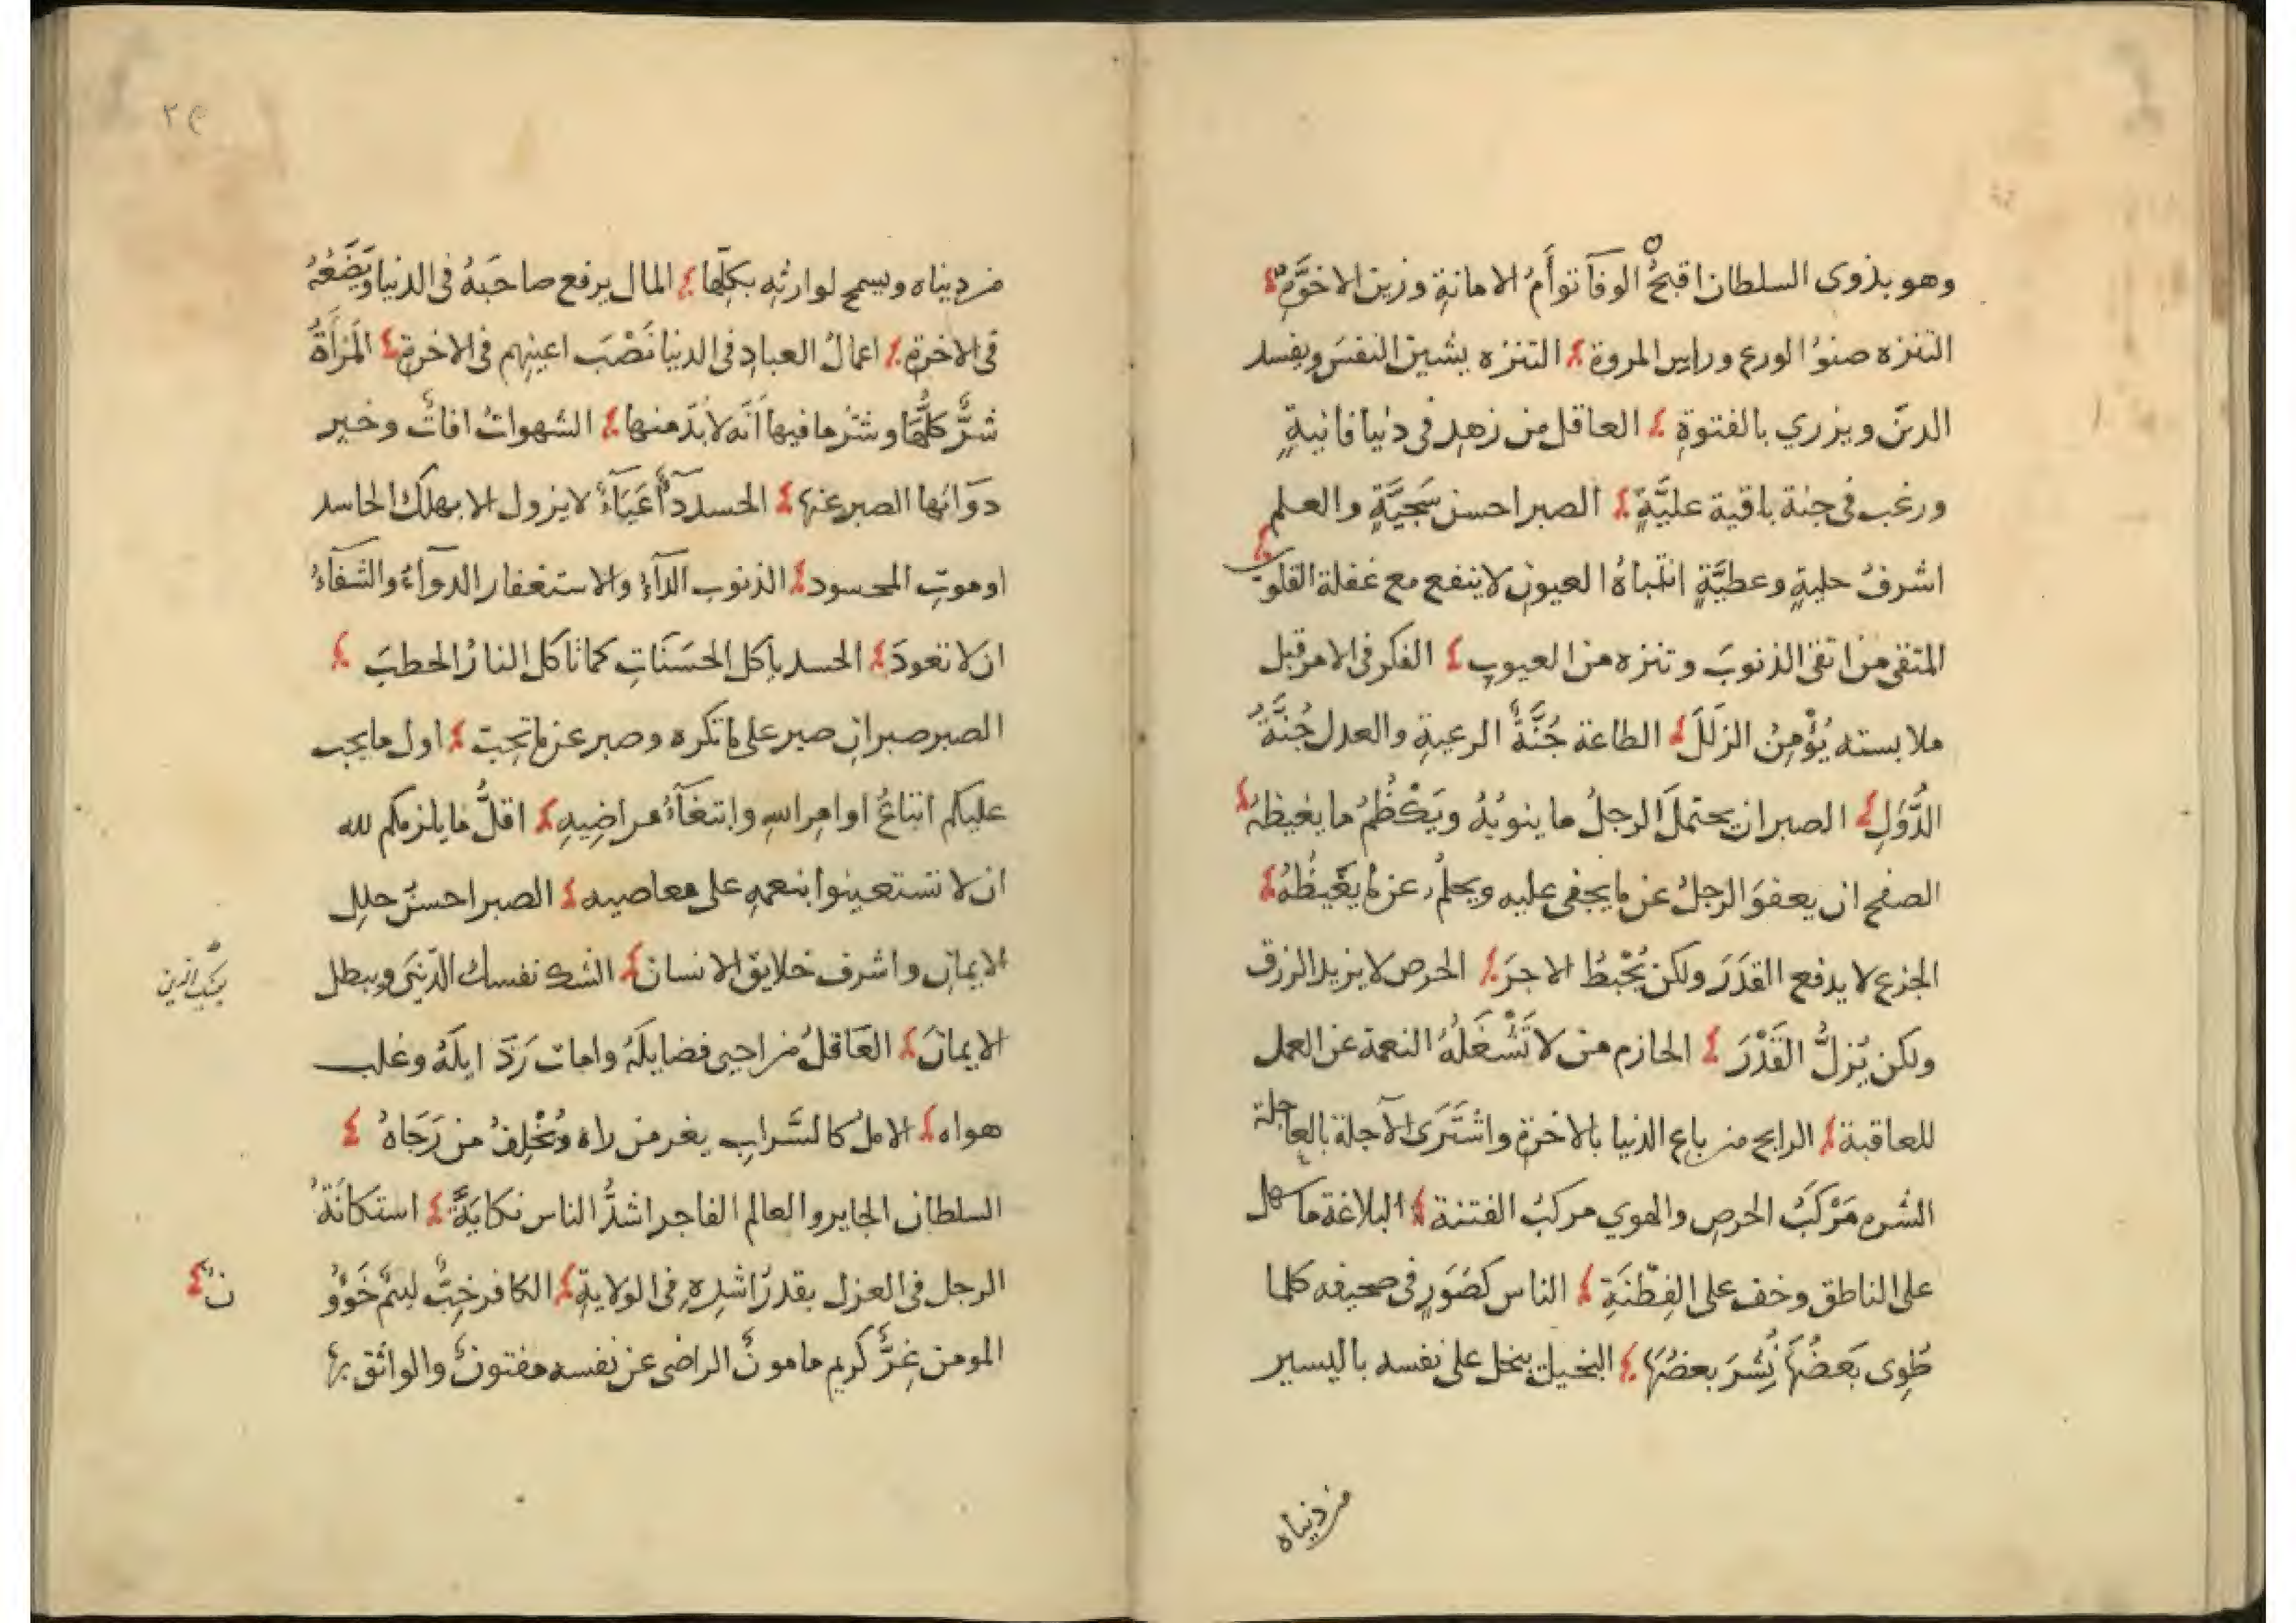 وهو بذوى السلطان اقبحُ الوفآ توأَمُ الامانةِ وزين الاخوَّةِ
التنزه صنوُ الورع وراس المروة التنزه يشين النفسَ ويفسد
الدينَ ويزري بالفتوةِ العاقل من زهد فى دنيا فانيةٍ
ورغب فى جنة باقية عليَّةٍ الصبر احسن سَجيَّةٍ والعلم
اشرفُ حليةٍ وعطيَّةٍ انتباهُ العيون لا ينفع مع غفلة القلوب
المتقى من اتقى الذنوبَ وتنزه من العيوبِ الفكر فى الامر قبل
ملابسته يُؤْمِنُ الزلَلَ الطاعة جُنَّةُ الرعيةِ والعدل جُنَّةُ
الدُّوَلِ الصبر ان يحتملَ الرجلُ ما ينوبُهُ ويَكْظُمُ ما يغيظهُ
الصفح ان يعفوَ الرجلُ عن ما يجفى عليه ويحلمُ عن ما يغيظُهُ
الجزع لا يدفع القدَرَ ولكن يُحْبِطُ الاجرَ الحرص لا يزيد الرزق
ولكن يُزلُّ القَدْرَ الحازم من لا تَشْغَلُهُ النعمة عن العمل
للعاقبة الرابح من باع الدنيا بالاخرة واشتَرَى الآجلة بالعاجلة
الشره مَرْكَبُ الحرصِ والهوي مركبُ الفتنة البلاغة ما سهل
على الناطق وخف على الفِطْنَةِ الناس كصَوَرٍ فى صحيفه كلما
طُوِى بَعضُهَا نُشرَ بعضُهَا البخيل يبخل على نفسه باليسير
من دنياه
٢٩
من دنياه ويسمح لوارثِه بكلّها المال يرفع صاحبَهُ فى الدنيا ويَضَعُهُ
فى الاخرةِ اعمالُ العبادِ فى الدنيا نَصْبَ اعينهم فى الاخرةِ المَرْأَةُ
شرٌّ كلُّهَا وشرُ ما فيها اَنَّه لابُدّ منها الشهواتُ افاتٌ وخير
دوَائها الصبر عنها الحسد دآءٌ عَيَآءٌ لا يزول الا بهلك الحاسد
او موتِ المحسود الذنوب الدآءُ والاستغفار الدوآءُ والشفآءُ
ان لا تعودَ الحسد ياكل الحسَنَاتِ كما تاكل النارُ الحطبَ
الصبر صبرانِ صبر على ما تكره وصبر عن ما تحِب اول ما يجب
عليكم اتباعُ اوامِر اللهِ وابتغآءُ مراضِيهِ اقلُّ ما يلزمكم لله
ان لا تستعينوا بنعمهِ على معاصيه الصبر احسنُ حلل
الايمان واشرف خلايق الانسان الشك نفسك الدّينَى ويبطل
يفسد الدين
الايمانَ العَاقلُ من احيى فضايلَهُ وامات رَذَ ايلَهُ وغلب
هواه الامل كالسَّرابِ يغر من راه ويُخْلِفُ من رَجَاهُ
السلطان الجاير والعالم الفاجر اشدُّ الناس نكايَةً استكانَةُ
الرجل فى العزل بقدر اشرِهِ فى الولايةِ الكافر خِبٌّ ليئم خَؤُو
نٌ
المومن غِرٌّ كريم مامونٌ الراضى عن نفسه مفتونٌ والواثق بها